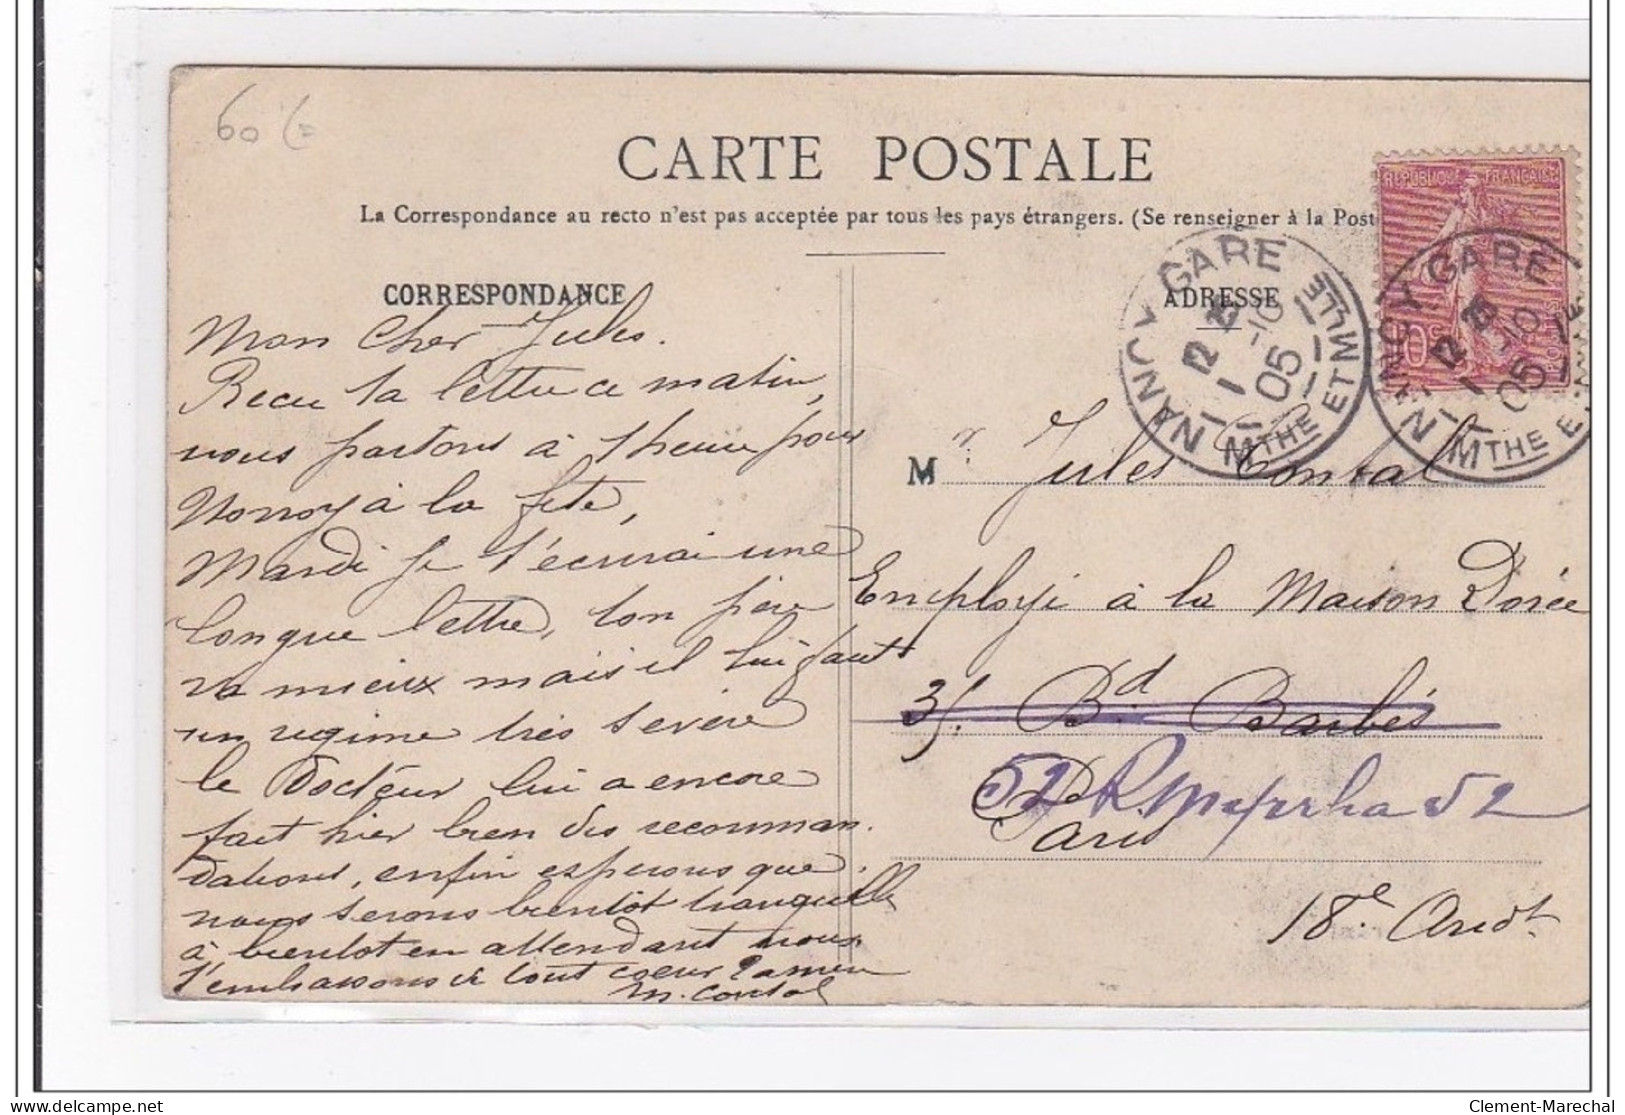 60
CARTE POSTALE
La Correspondance au recto n'est pas acceptée par tous les pays étrangers. (Se renseigner à la Post
CORRESPONDANCE
ADRESSE
REPUBLIQUE FRANÇAISE
10c
POSTES
NANCY GARE
MTHE ET MLLE
12 25
1 -10
05
NANCY GARE
MTHE E
12 25
1 -10
05
Mon Cher Jules.
Recu ta lettre ce matin,
nous partons à 1 heure pour
Norroy à la fete,
Mardi je t'écrirai une
longue lettre, ton père
va mieux mais il lui faut
un regime très severe
le Docteur lui a encore
fait hier bien des recomman
dations, enfin esperons que
nous serons bientôt tranquille
à bientot en attendant nous
t'embrassons de tout coeur
M. Contal
Mr Jules Contal
Employé à la Maison Dorée
35. Bd Barbès
52 R 52
Paris
18e Arrdt
Clement-Marechal